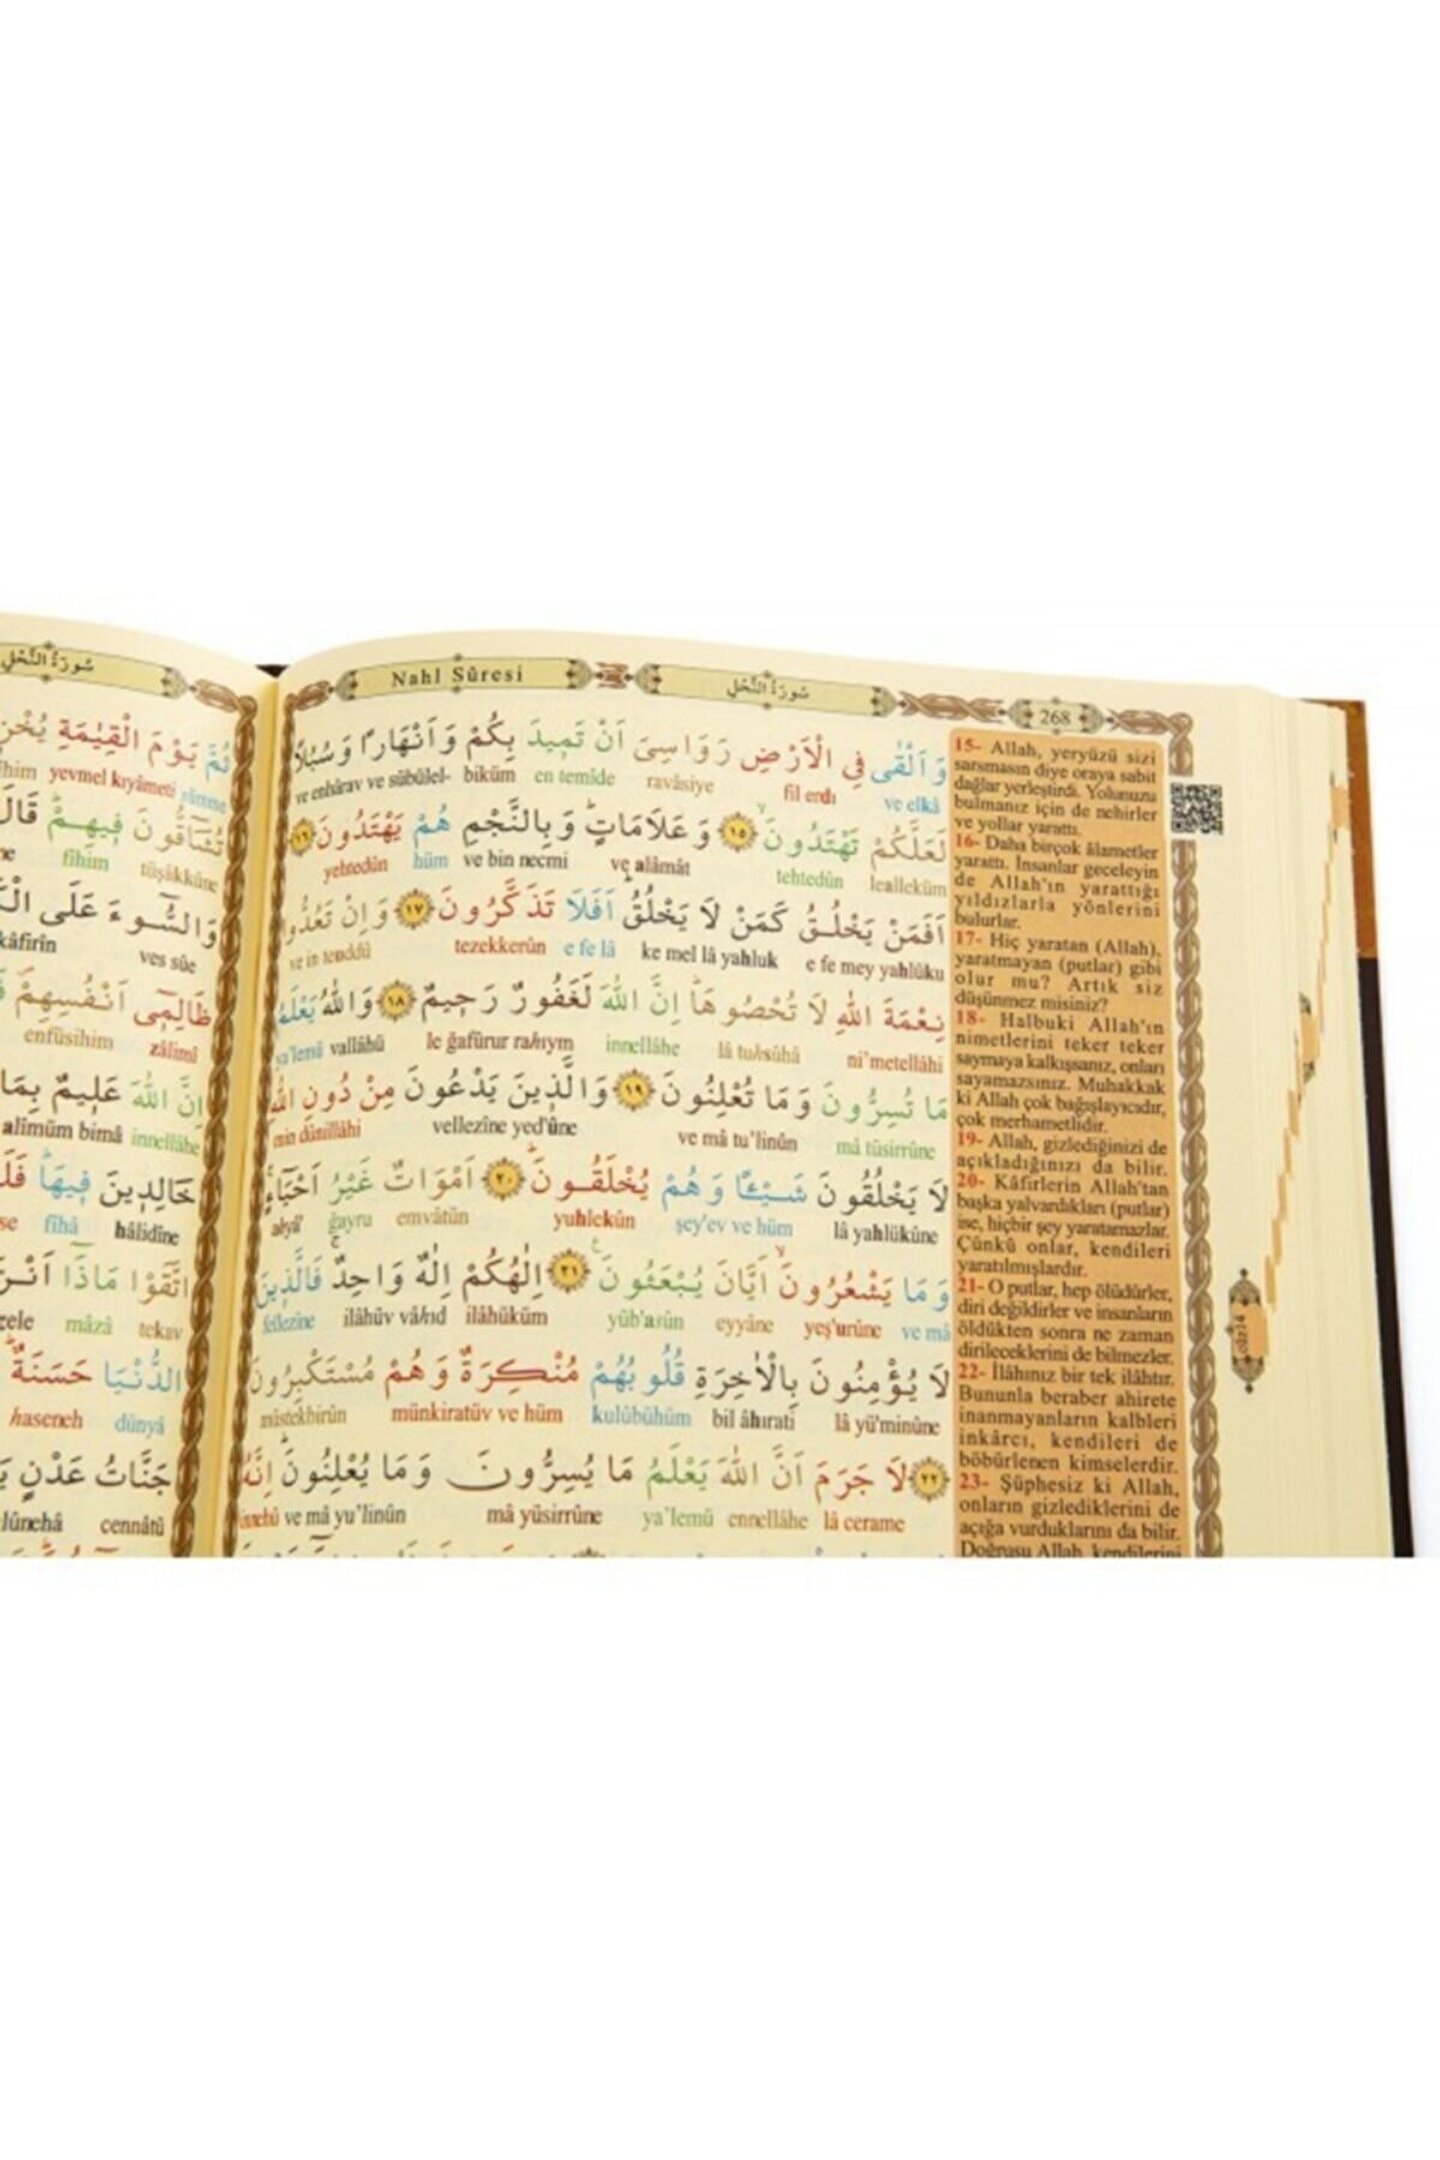 سُورَةُ النَّحْلِ
ثُمَّ يَوْمَ الْقِيٰمَةِ
yevmel kıyâmeti sümme
تُشَٓاقُّونَ ف۪يهِمْۜ قَالَ
fîhim tüşâkkûne
وَالسُّٓوءَ عَلَى
kâfirîn ves sûe
ظَالِم۪ٓي اَنْفُسِهِمْۖ
enfüsihim zâlimî
اِنَّ اللّٰهَ عَل۪يمٌ بِمَا
alîmüm bimâ innellâhe
خَالِد۪ينَ ف۪يهَاۜ
fîhâ hâlidîne
اتَّقَوْا مَاذَٓا
mâzâ tekav
الدُّنْيَا حَسَنَةٌۜ
haseneh dünyâ
جَنَّاتُ عَدْنٍ
cennâtü
Nahl Sûresi
سُورَةُ النَّحْلِ
268
وَاَلْقٰى فِي الْاَرْضِ رَوَاسِيَ اَنْ تَم۪يدَ بِكُمْ وَاَنْهَارًا وَسُبُلًا
ve enhârav ve sübülel- biküm en temîde ravâsiye fil erdı ve elkâ
لَعَلَّكُمْ تَهْتَدُونَۙ ﴿١٥﴾ وَعَلَامَاتٍۜ وَبِالنَّجْمِ هُمْ يَهْتَدُونَ ﴿١٦﴾
yehtedûn hüm ve bin necmi ve alâmât tehtedûn lealleküm
اَفَمَنْ يَخْلُقُ كَمَنْ لَا يَخْلُقُۜ اَفَلَا تَذَكَّرُونَ ﴿١٧﴾ وَاِنْ تَعُدُّوا
ve in teuddû tezekkerûn e fe lâ ke mel lâ yahluk e fe mey yahlüku
نِعْمَةَ اللّٰهِ لَا تُحْصُوهَاۜ اِنَّ اللّٰهَ لَغَفُورٌ رَح۪يمٌ ﴿١٨﴾ وَاللّٰهُ يَعْلَمُ
ya'lemü vallâhü le ğafûrur rahıym innellâhe lâ tuhsûhâ ni'metellâhi
مَا تُسِرُّونَ وَمَا تُعْلِنُونَ ﴿١٩﴾ وَالَّذ۪ينَ يَدْعُونَ مِنْ دُونِ اللّٰهِ
min dûnillâhi vellezîne yed'ûne ve mâ tu'linûn mâ tüsirrûne
لَا يَخْلُقُونَ شَيْـًٔا وَهُمْ يُخْلَقُونَۜ ﴿٢٠﴾ اَمْوَاتٌ غَيْرُ اَحْيَٓاءٍۚ
ahyâ' ğayru emvâtün yuhlekûn şey'ev ve hüm lâ yahlükûne
وَمَا يَشْعُرُونَۙ اَيَّانَ يُبْعَثُونَ۟ ﴿٢١﴾ اِلٰهُكُمْ اِلٰهٌ وَاحِدٌۚ فَالَّذ۪ينَ
fellezîne ilâhüv vâhıd ilâhüküm yüb'asûn eyyâne yeş'urûne ve mâ
لَا يُؤْمِنُونَ بِالْاٰخِرَةِ قُلُوبُهُمْ مُنْكِرَةٌ وَهُمْ مُسْتَكْبِرُونَ
müstekbirûn münkiratüv ve hüm kulûbühüm bil âhırati lâ yü'minûne
﴿٢٢﴾ لَا جَرَمَ اَنَّ اللّٰهَ يَعْلَمُ مَا يُسِرُّونَ وَمَا يُعْلِنُونَۜ اِنَّهُ
innehû ve mâ yu'linûn mâ yüsirrûne ya'lemü ennellâhe lâ cerame
15- Allah, yeryüzü sizi
sarsmasın diye oraya sabit
dağlar yerleştirdi. Yolunuzu
bulmanız için de nehirler
ve yollar yarattı.
16- Daha birçok âlametler
yarattı. İnsanlar geceleyin
de Allah'ın yarattığı
yıldızlarla yönlerini
bulurlar.
17- Hiç yaratan (Allah),
yaratmayan (putlar) gibi
olur mu? Artık siz
düşünmez misiniz?
18- Halbuki Allah'ın
nimetlerini teker teker
saymaya kalkışsanız, onları
sayamazsınız. Muhakkak
ki Allah çok bağışlayıcıdır,
çok merhametlidir.
19- Allah, gizlediğinizi de
açıkladığınızı da bilir.
20- Kâfirlerin Allah'tan
başka yalvardıkları (putlar)
ise, hiçbir şey yaratamazlar.
Çünkü onlar, kendileri
yaratılmışlardır.
21- O putlar, hep ölüdürler,
diri değildirler ve insanların
öldükten sonra ne zaman
dirileceklerini de bilmezler.
22- İlâhınız bir tek ilâhtır.
Bununla beraber ahirete
inanmayanların kalbleri
inkârcı, kendileri de
böbürlenen kimselerdir.
23- Şüphesiz ki Allah,
onların gizlediklerini de
açığa vurduklarını da bilir.
Doğrusu Allah, kendilerini
cüz14